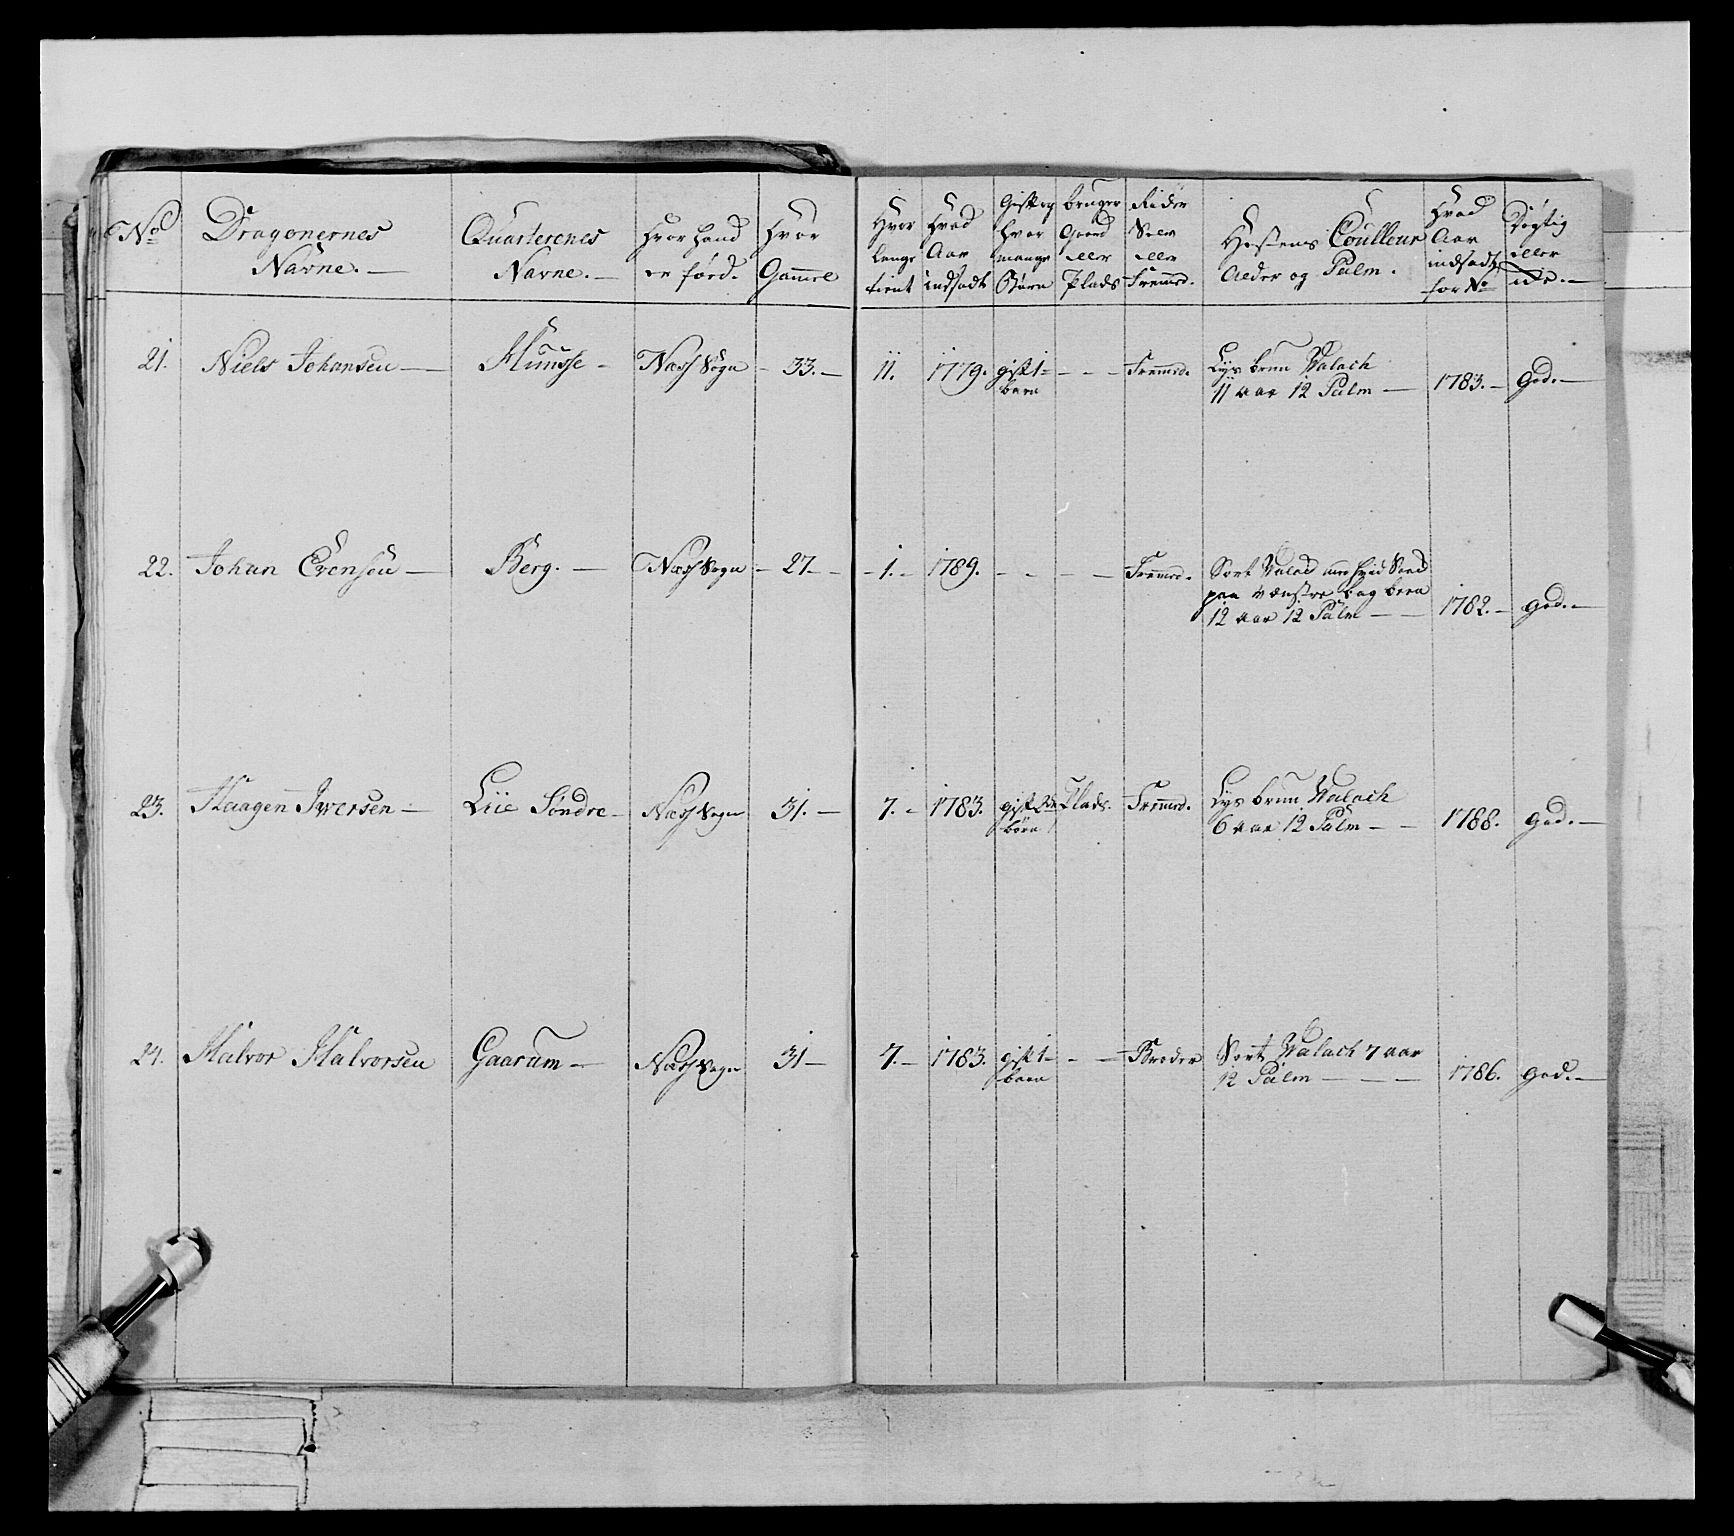 No Dragonernes Navne. Quarterenes Navne. Hvor hand er född. Hvor Gamel Hvor lenge tient Hvad Aar indsadt Gift og hvor mange Børn bruger Gaard eller Plads Rider Selv eller Fremed. Hestens Coulleur Alder og Palm. Hvad Aar indsadt for No Dygtig eller ide.
21. Niels Johansen Næss Sogn 33. 11. 1779. gift 1 barn Fremed. Lys brun Walach
11 aar 12 Palm 1783. god.
22. Johan Evensen Berg. Næss Sogn 27 1. 1789. Fremed. Sort Walac med hvid Soed
paa vænstre bag been
12 aar 12 Palm 1782. god.
23. Haagen Iwersen Liie Søndre Næss Sogn 31. 7. 1783. gift børn Plads. Fremed. Lys brun Walach
6 aar 12 Palm 1788. god.
24. Halvor Halvorsen Gaarum Næss Sogn 31 7. 1783. gift 1 barn Broder Sort Walach 7 aar
12 Palm 1786. god.